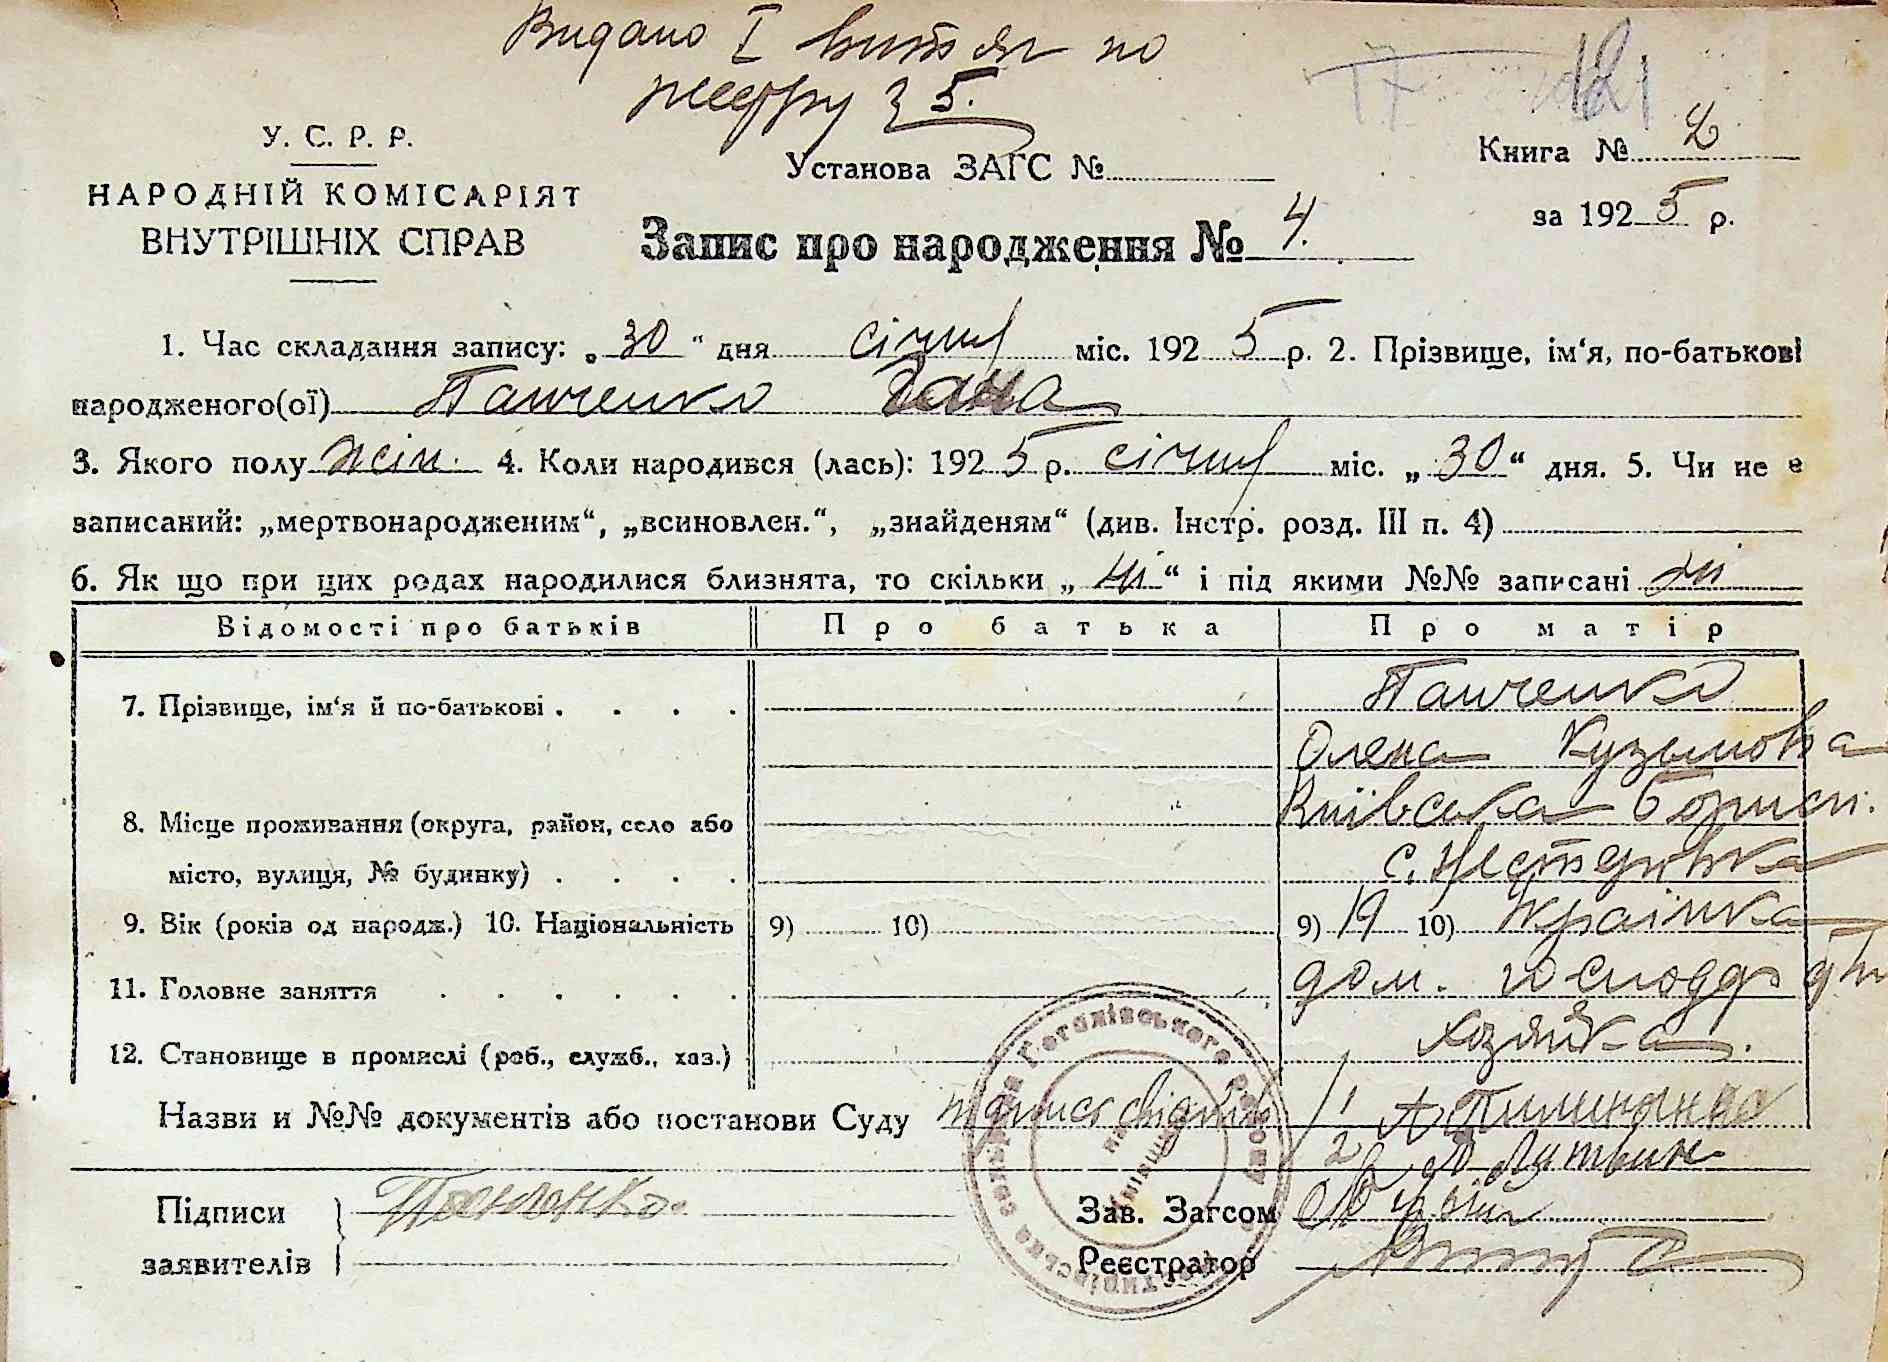 Видано І витяг по
реєстру з 5.
121
У. С. Р. Р.
НАРОДНІЙ КОМІСАРІЯТ
ВНУТРІШНІХ СПРАВ
Установа ЗАГС №
Книга № 2
за 1925 р.
Запис про народження № 4.
1. Час складання запису: „30“ дня січня міс. 1925 р. 2. Прізвище, ім‘я, по-батькові
народженого(ої) Панченко Гана
3. Якого полу жін. 4. Коли народився (лась): 1925 р. січня міс. „30“ дня. 5. Чи не є
записаний: „мертвонародженим“, „всиновлен.“, „знайденям“ (див. Інстр. розд. III п. 4)
6. Як що при цих родах народилися близнята, то скільки „ні“ і під якими №№ записані ні
Відомості про батьків Про батька Про матір
7. Прізвище, ім‘я й по-батькові . . . . Панченко
Олена Кузьмовна
8. Місце проживання (округа, район, село або Київська Борисп.
місто, вулиця, № будинку) . . . . с. Нестеровка
9. Вік (років од народж.) 10. Національність 9) 10) 9) 19 10) Українка
11. Головне заняття . . . . . . дом. господар
12. Становище в промислі (роб., служб., хаз.) хозяйка.
Назви и №№ документів або постанови Суду підпись свідків 1
2 Литвин
Підписи заявителів Панченко.
Зав. Загсом
Реєстратор